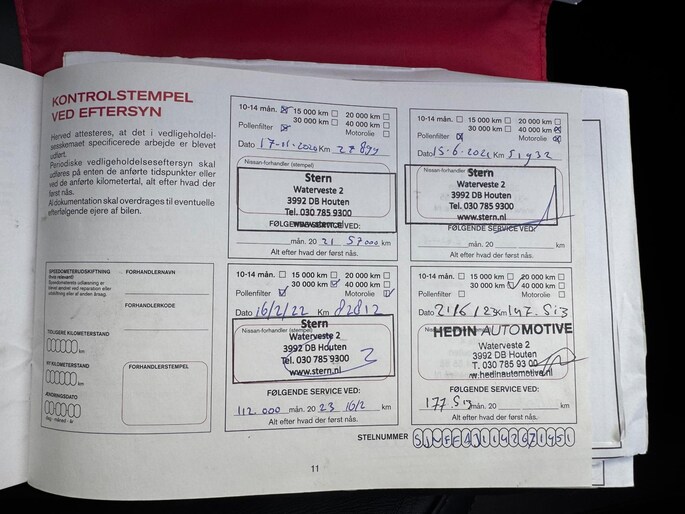 KONTROLSTEMPEL
VED EFTERSYN
Herved attesteres, at det i vedligeholdel-
sesskemaet specificerede arbejde er blevet
udført.
Periodiske vedligeholdelseseftersyn skal
udføres på enten de anførte tidspunkter eller
ved de anførte kilometertal, alt efter hvad der
først nås.
Al dokumentation skal overdrages til eventuelle
efterfølgende ejere af bilen.
10-14 mån. 15 000 km 20 000 km
30 000 km 40 000 km
Pollenfilter Motorolie
Dato 17-11-2020 Km 27899
Nissan-forhandler (stempel)
Stern
Waterveste 2
3992 DB Houten
Tel. 030 785 9300
www.stern.nl
FØLGENDE SERVICE VED:
mån. 20 21 57000 km
Alt efter hvad der først nås.
10-14 mån. 15 000 km 20 000 km
30 000 km 40 000 km
Pollenfilter Motorolie
Dato 15-6-2021 Km 51932
Nissan-forhandler (stempel)
Stern
Waterveste 2
3992 DB Houten
Tel. 030 785 9300
www.stern.nl
FØLGENDE SERVICE VED:
mån. 20 km
Alt efter hvad der først nås.
SPEEDOMETERUDSKIFTNING
(hvis relevant)
FORHANDLERNAVN
FORHANDLERKODE
TIDLIGERE KILOMETERSTAND
km
NY KILOMETERSTAND
km
ÆNDRINGSDATO
dag - måned - år
FORHANDLERSTEMPEL
10-14 mån. 15 000 km 20 000 km
30 000 km 40 000 km
Pollenfilter Motorolie
Dato 16/2/22 Km 82812
Nissan-forhandler (stempel)
Stern
Waterveste 2
3992 DB Houten
Tel. 030 785 9300
www.stern.nl
FØLGENDE SERVICE VED:
112.000 mån. 20 23 16/2 km
Alt efter hvad der først nås.
10-14 mån. 15 000 km 20 000 km
30 000 km 40 000 km
Pollenfilter Motorolie
Dato 21/6/23 Km 147.513
HEDIN AUTOMOTIVE
Waterveste 2
3992 DB Houten
T. 030 785 93 00
w.hedinautomotive.nl
FØLGENDE SERVICE VED:
177.513 mån. 20 km
Alt efter hvad der først nås.
STELNUMMER
11